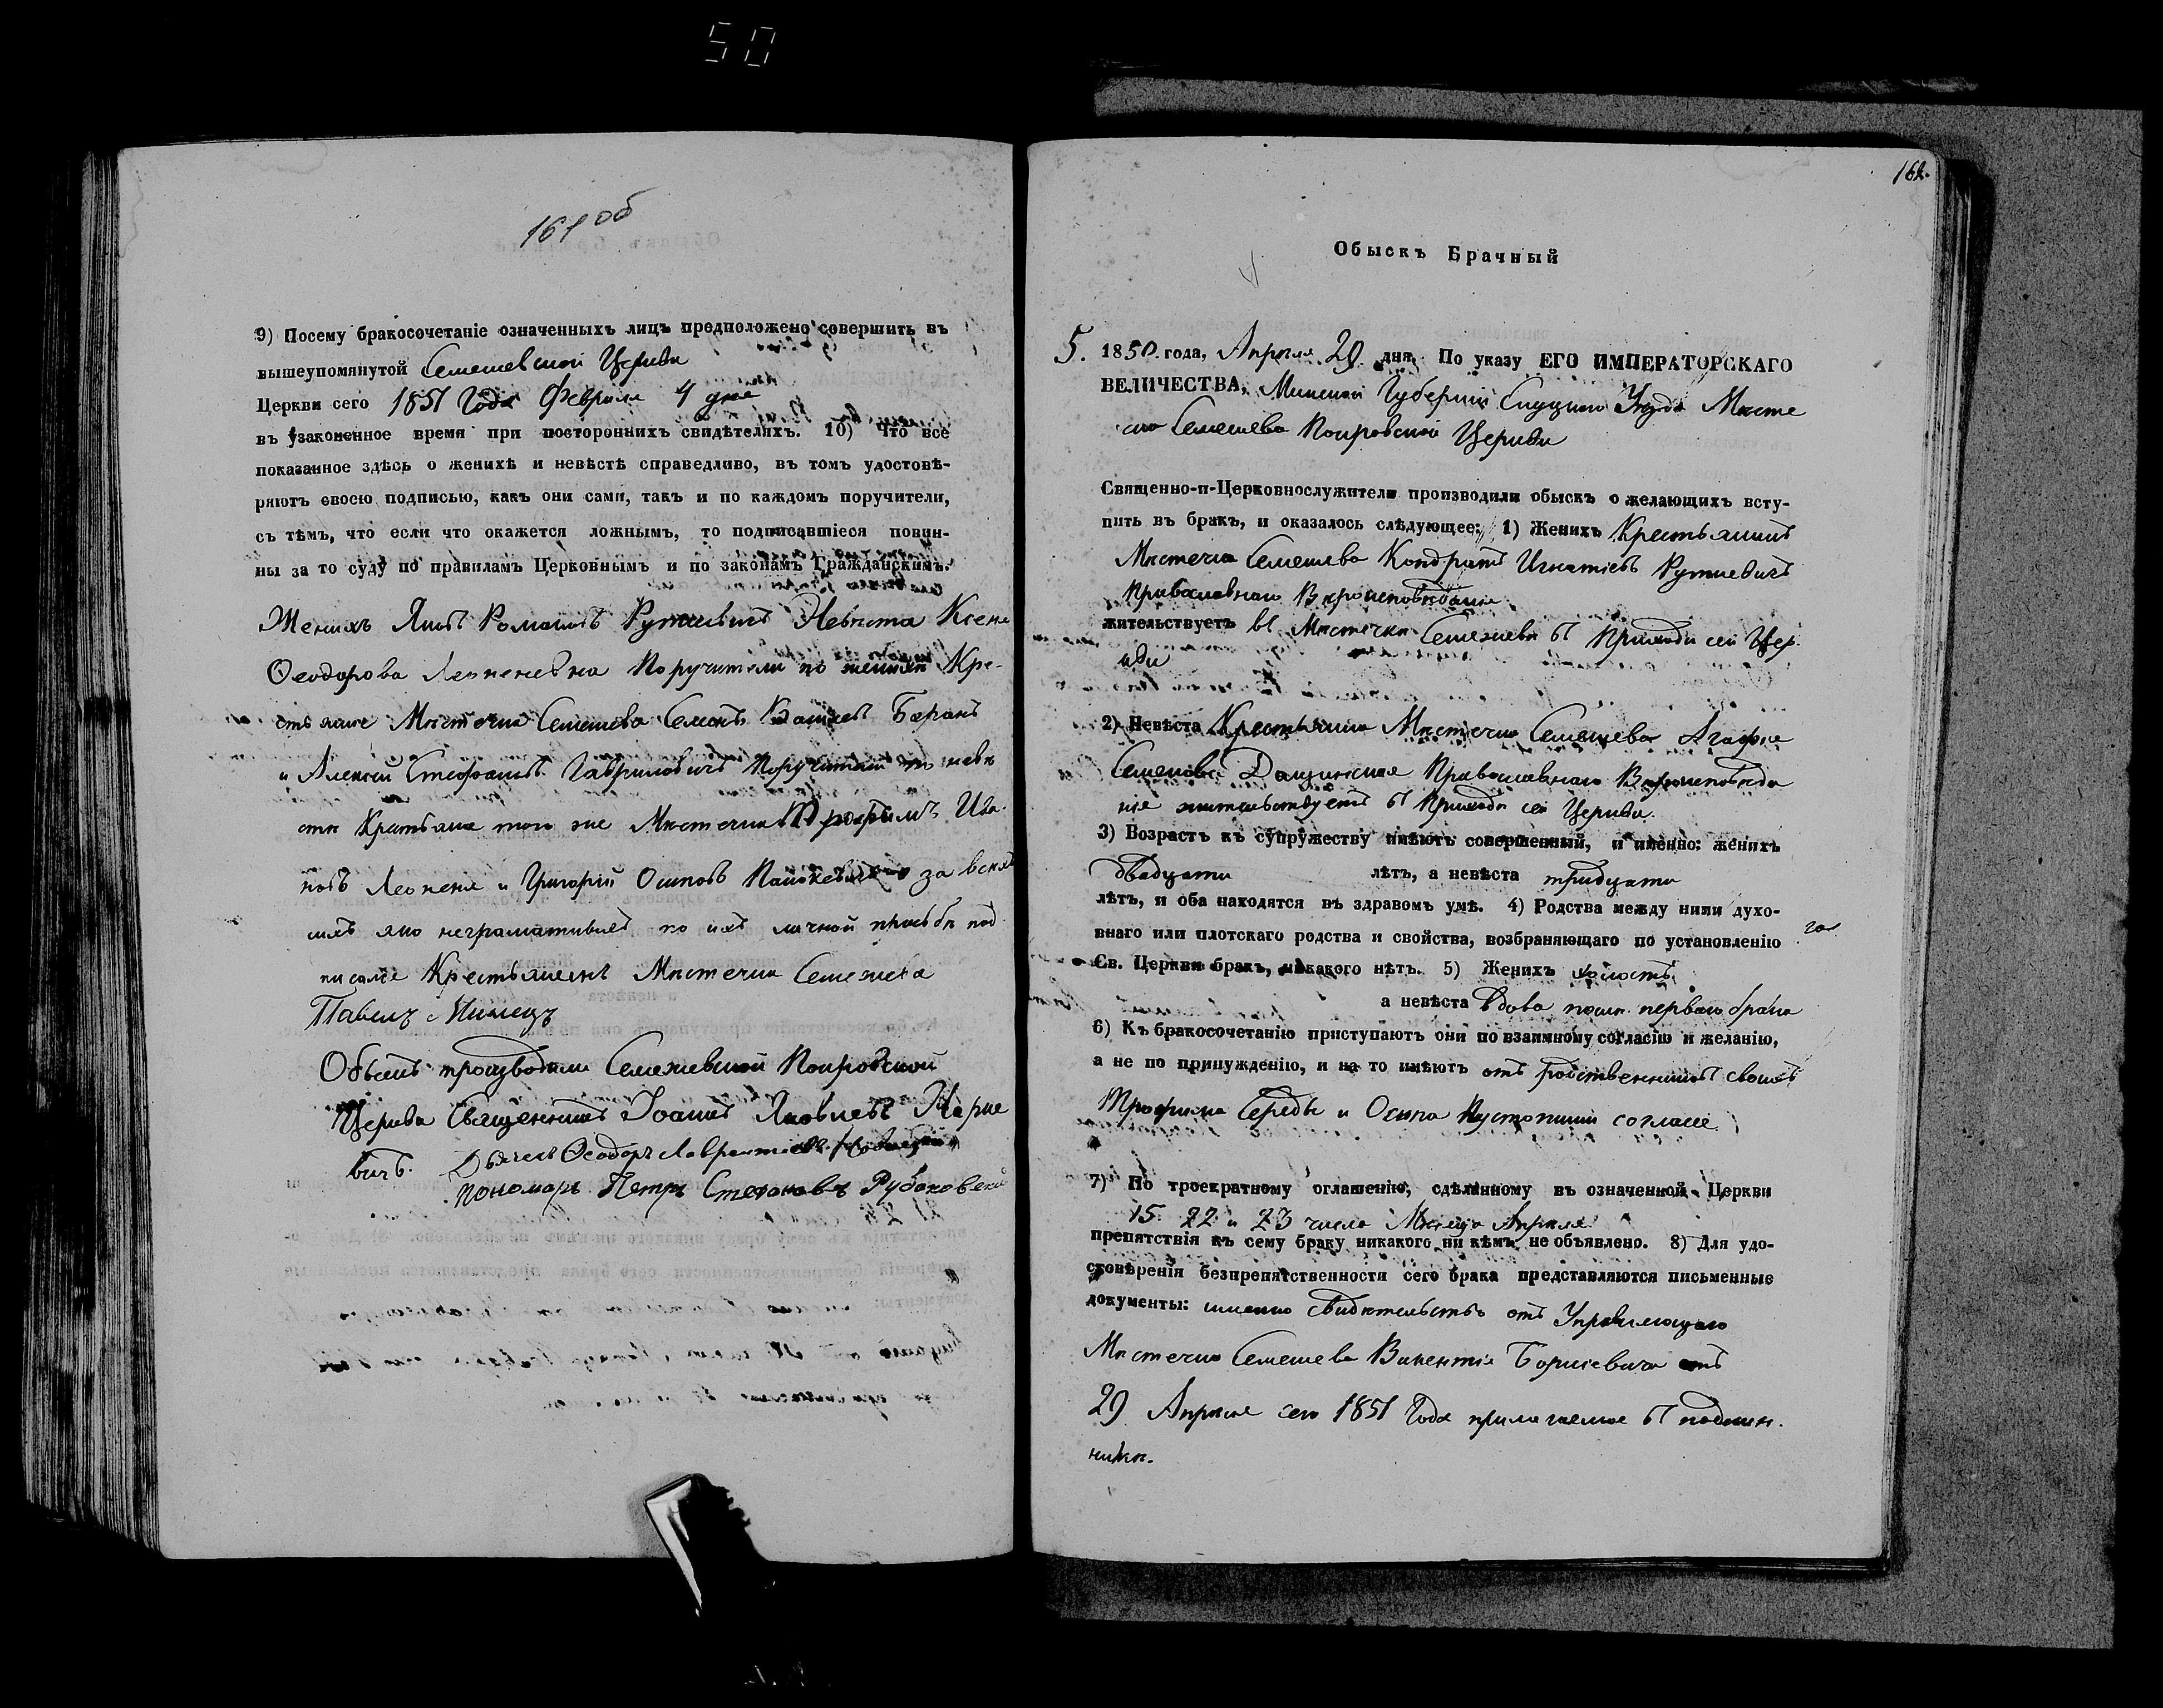 50
161 об
9) Посему бракосочетаніе означенныхъ лицъ предположено совершить въ
вышеупомянутой Семежевской Церкви
Церкви сего 1851 Года Февраля 4 дня
въ узаконенное время при постороннихъ свидѣтеляхъ. 10) Что все
показанное здѣсь о женихѣ и невѣстѣ справедливо, въ томъ удостовѣ-
ряютъ своею подписью, какъ они сами, такъ и по каждомъ поручители,
съ тѣмъ, что если что окажется ложнымъ, то подписавшіеся повин-
ны за то суду по правиламъ Церковнымъ и по законамъ Гражданскимъ.
Женихъ Романовъ Руткевичъ Невѣста Ксенія
Ѳеодорова Поручители по женихѣ Кре-
стьяне Мѣстечка Семежева Семенъ Баранъ
и Алексѣй Стефановъ Гавриловичъ Поручители по невѣ
стѣ Крестьяне того же Мѣстечка Ива
новъ и Григорій Осиповъ за всѣхъ
ихъ яко неграматныхъ по ихъ личной прозьбѣ под
писался Крестьянинъ Мѣстечка Семежева
Павелъ
Обыскъ производили Семежевской Покровской
Церкви Священникъ Іоаннъ Яковлевъ
вичъ. Дьячекъ Ѳеодоръ Лаврентіевъ
Пономарь Петръ Стефановъ Рубановскій
162.
Обыскъ Брачный
5. 1850. года, Апрѣля 29 дня. По указу ЕГО ИМПЕРАТОРСКАГО
ВЕЛИЧЕСТВА, Минской Губерніи Слуцкаго Уѣзда Мѣсте
чка Семежева Покровской Церкви
Священно-и-Церковнослужители производили обыскъ о желающихъ всту-
пить въ бракъ, и оказалось слѣдующее: 1) Женихъ Крестьянинъ
Мѣстечка Семежева Кондратъ Игнатіевъ Руткевичъ
Православнаго Вѣроисповѣданія
жительствуетъ въ Мѣстечкѣ Семежевѣ въ Приходѣ сей Цер-
кви
2) Невѣста Крестьянка Мѣстечка Семежева Агафія
Семенова Православнаго Вѣроисповѣда
нія жительствуетъ въ Приходѣ сей Церкви.
3) Возрастъ къ супружеству имѣютъ совершенный, и именно: женихъ
двадцати лѣтъ, а невѣста тридцати
лѣтъ, и оба находятся въ здравомъ умѣ. 4) Родства между ними духо-
внаго или плотскаго родства и свойства, возбраняющаго по установленію
Св. Церкви бракъ, никакого нѣтъ. 5) Женихъ холостъ
а невѣста вдова послѣ перваго брака
6) Къ бракосочетанію приступаютъ они по взаимному согласію и желанію,
а не по принужденію, и на то имѣютъ отъ родственниковъ своихъ
Трофима Середы и Осипа согласіе
7) По троекратному оглашенію, сдѣланному въ означенной Церкви
15 22 и 23 числа Мѣсяца Апрѣля
препятствія къ сему браку никакого ни кѣмъ не объявлено. 8) Для удо-
стовѣренія безпрепятственности сего брака представляются письменные
документы: именно свидѣтельство отъ Управляющаго
Мѣстечка Семежева Викентія Борисевича отъ
29 Апрѣля сего 1851 Года прилагаемое въ подлин-
никѣ.